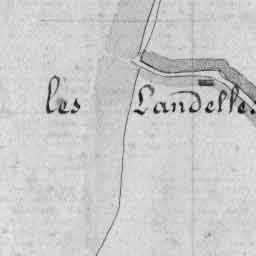 les Landelles